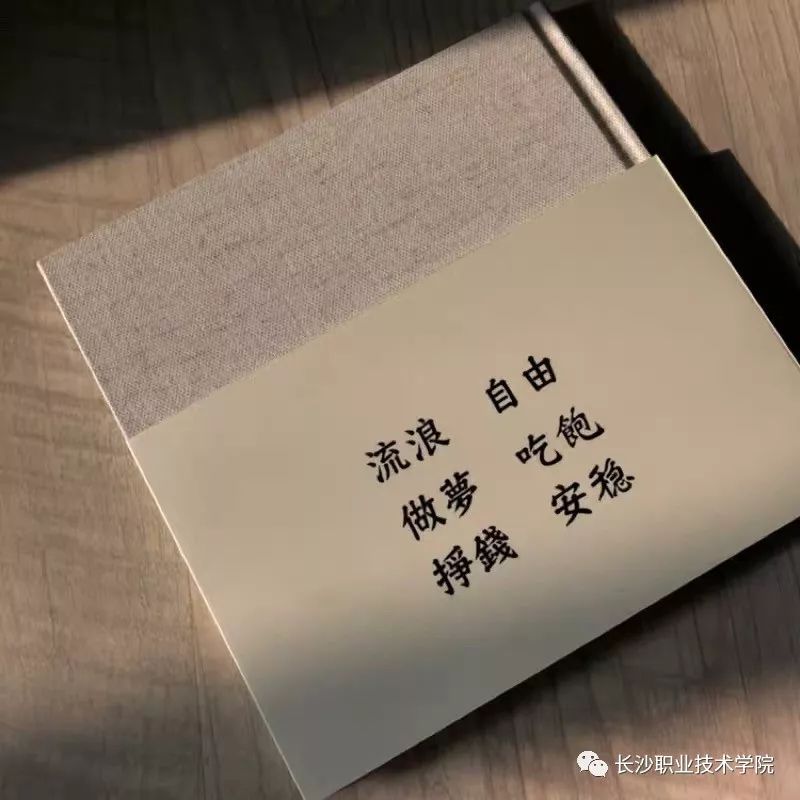 流浪 自由
做夢 吃飽
掙錢 安稳
长沙职业技术学院